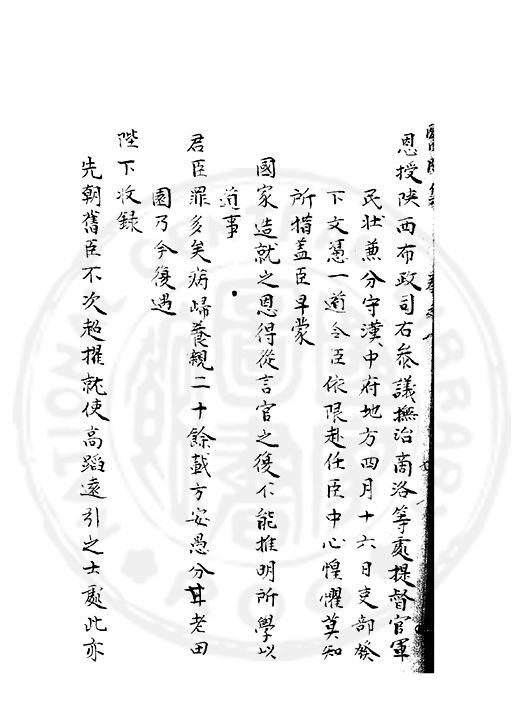 恩授陝西布政司右叅議撫治商洛等處提督官軍
民壯兼分守漢中府地方四月十六日吏部發
下文憑一道令臣依限赴任臣中心惶懼莫知
所措蓋臣早蒙
國家造就之恩得從言官之後不能推明所學以
道事
君臣罪多矣病歸養親二十餘載方安愚分甘老田
園乃今復遇
陛下收録
先朝舊臣不次超擢就使高蹈遠引之士處此亦